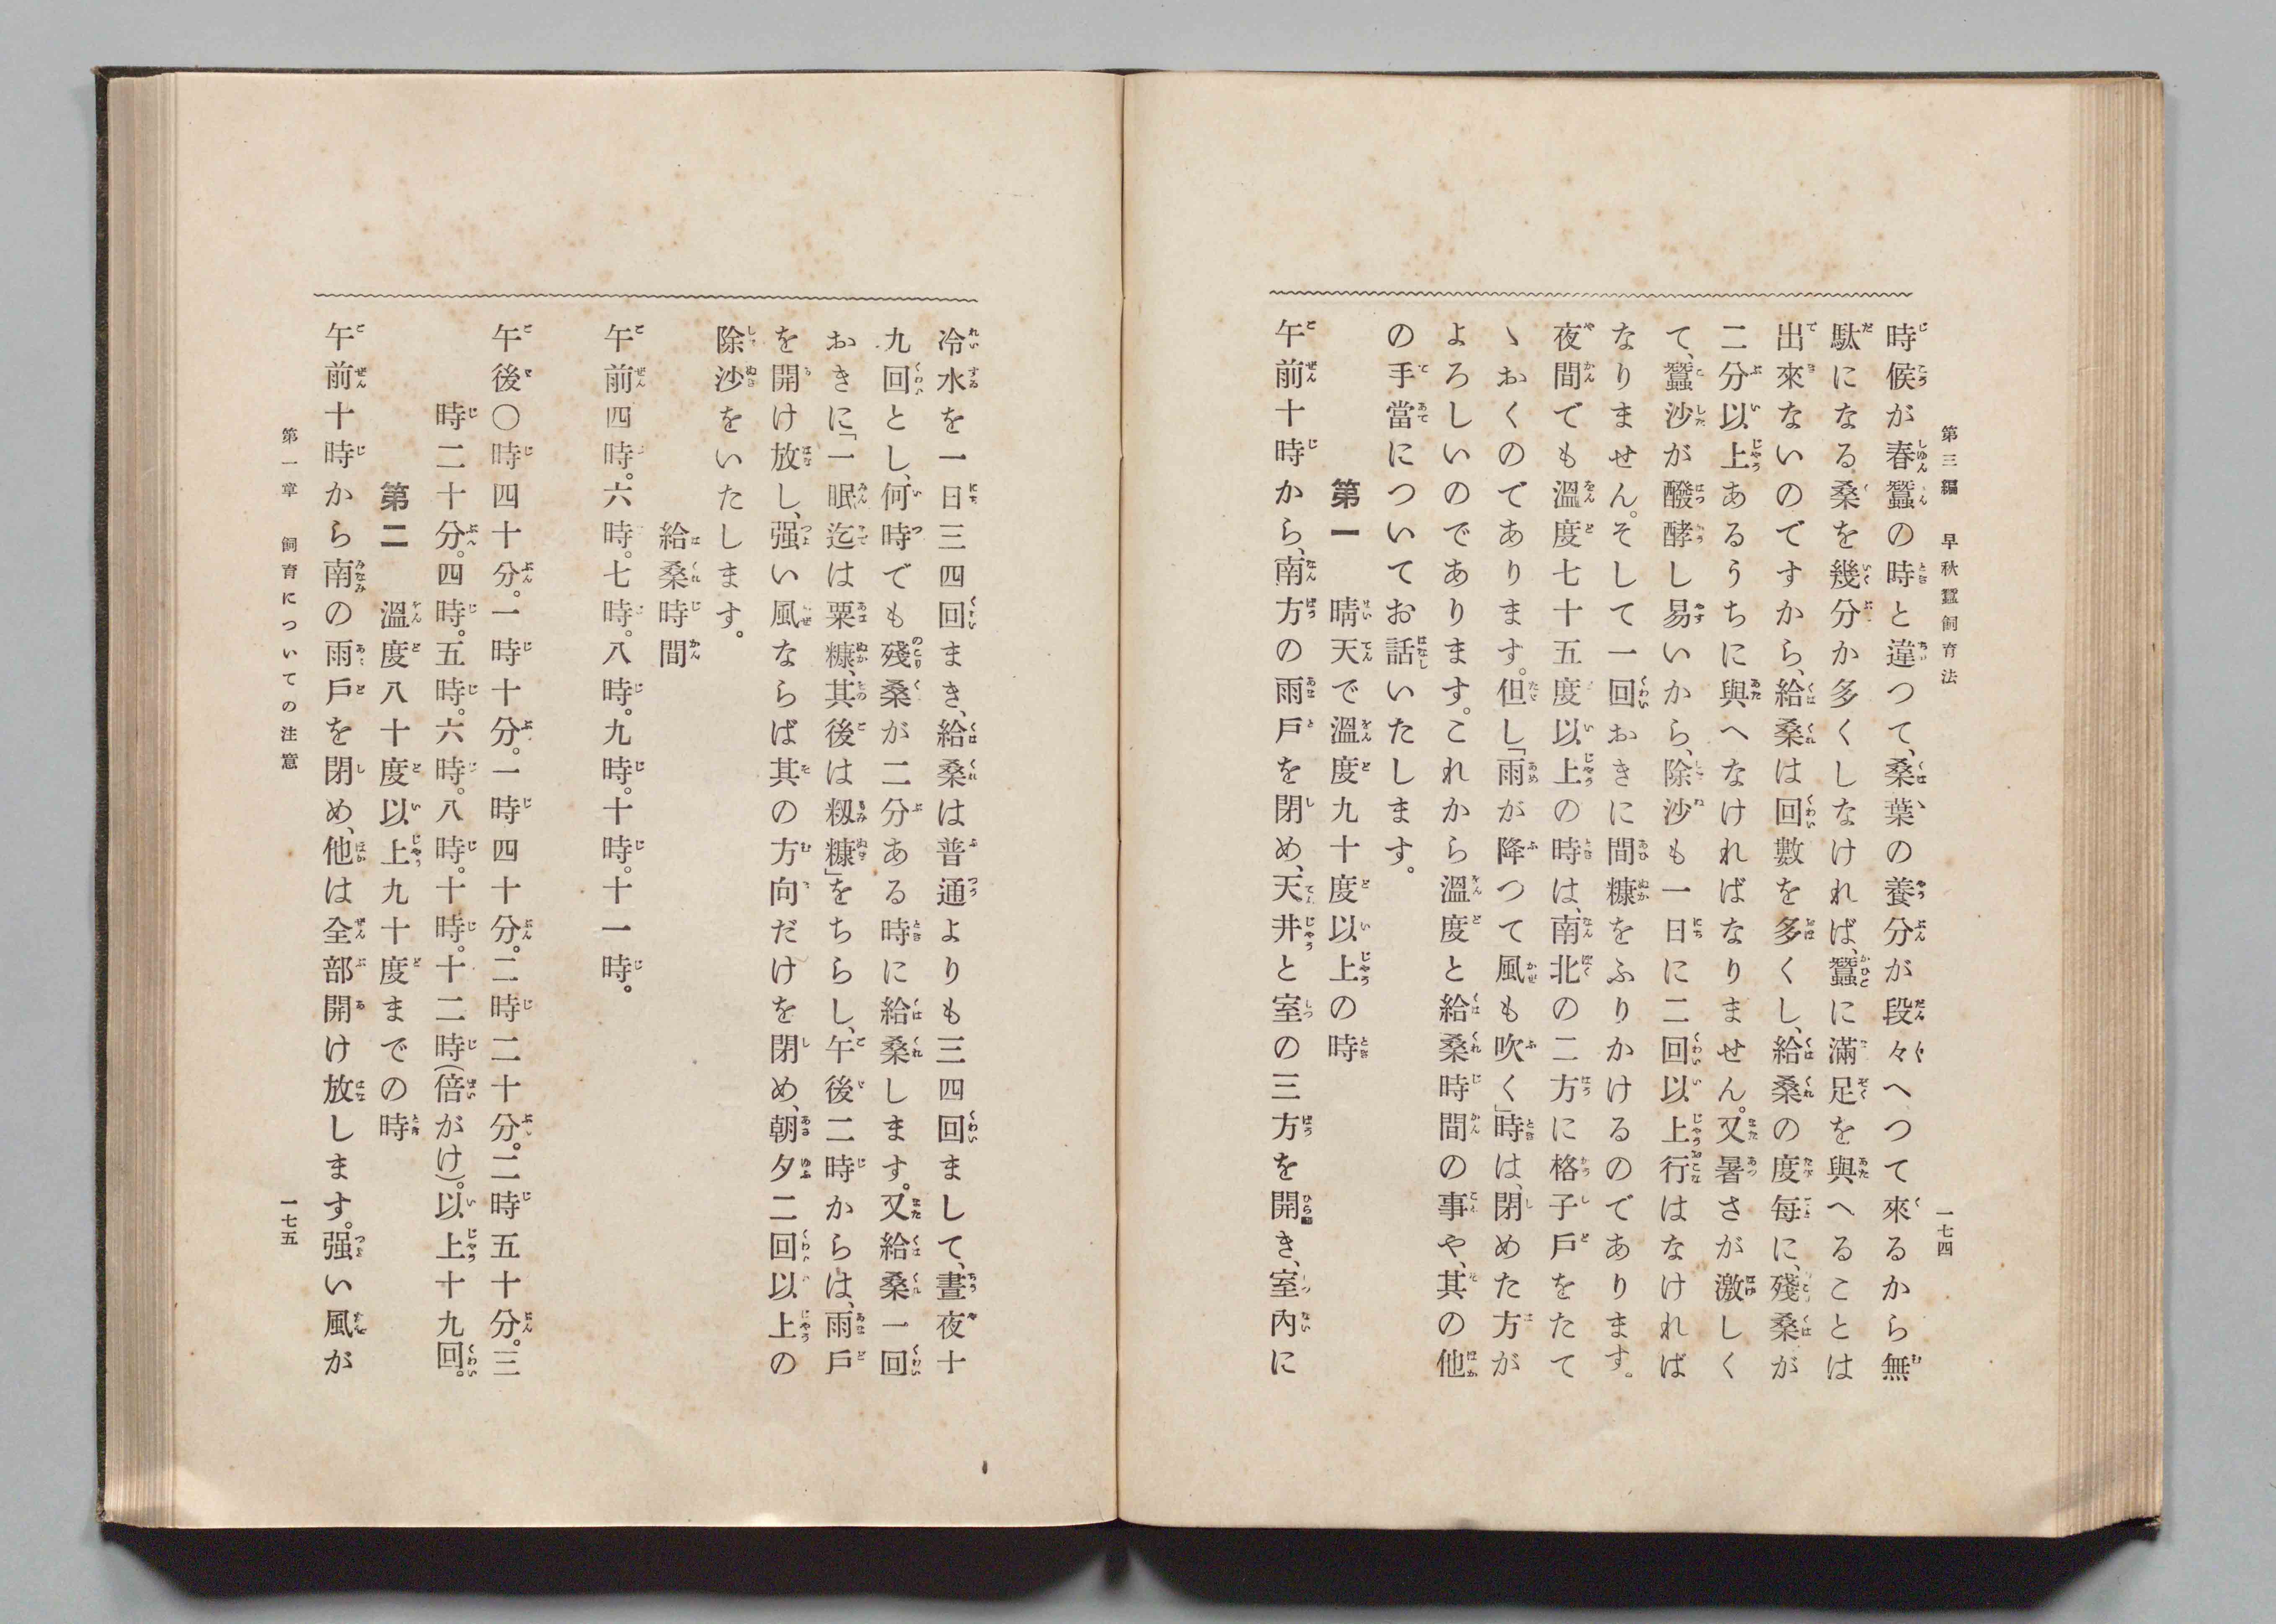 第三編　早秋蠶飼育法　一七四
時候が春蠶の時と違つて、桑葉の養分が段々へつて來るから無
駄になる桑を幾分か多くしなければ、蠶に滿足を與へることは
出來ないのですから、給桑は回數を多くし、給桑の度每に、殘桑が
二分以上あるうちに與へなければなりません。又暑さが激しく
て、蠶沙が醱酵し易いから、除沙も一日に二回以上行はなければ
なりません。そして一回おきに間糠をふりかけるのであります。
夜間でも溫度七十五度以上の時は、南北の二方に格子戶をたて
ゝおくのであります。但し「雨が降つて風も吹く」時は、閉めた方が
よろしいのであります。これから溫度と給桑時間の事や、其の他
の手當についてお話いたします。
第一　晴天で溫度九十度以上の時
午前十時から、南方の雨戶を閉め、天井と室の三方を開き、室內に
冷水を一日三四回まき、給桑は普通よりも三四回まして、晝夜十
九回とし、何時でも殘桑が二分ある時に給桑します。又給桑一回
おきに「一眠迄は粟糠、其後は籾糠」をちらし、午後二時からは、雨戶
を開け放し、强い風ならば其の方向だけを閉め、朝夕二回以上の
除沙をいたします。
給桑時間
午前四時。六時。七時。八時。九時。十時。十一時。
午後〇時四十分。一時十分。一時四十分。二時二十分。二時五十分。三
時二十分。四時。五時。六時。八時。十時。十二時(倍がけ)。以上十九回。
第二　溫度八十度以上九十度までの時
午前十時から南の雨戶を閉め、他は全部開け放します。强い風が
第一章　飼育についての注意　一七五